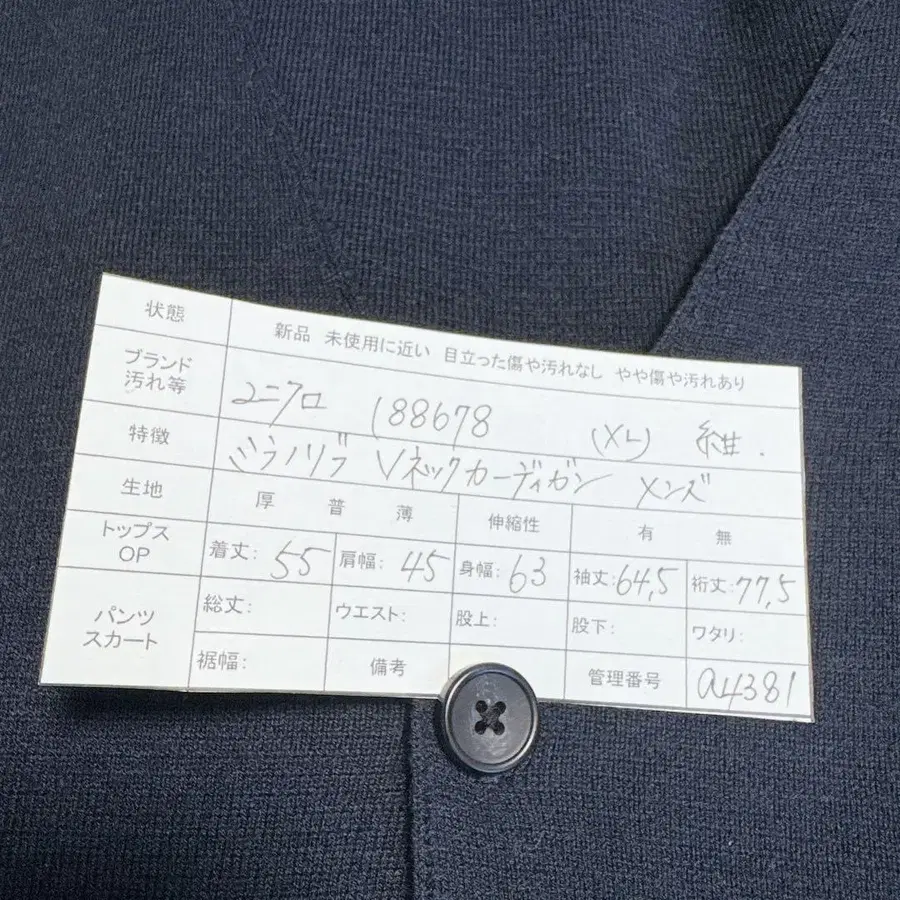 状態 新品 未使用に近い 目立った傷や汚れなし やや傷や汚れあり
ブランド 汚れ等 ユニクロ 188678 (XL) 紺.
特徴 ミラノリブ Vネックカーディガン メンズ
生地 厚 普 薄 伸縮性 有 無
トップス OP 着丈: 55 肩幅: 45 身幅: 63 袖丈: 64,5 裄丈: 77,5
パンツ スカート 総丈: ウエスト: 股上: 股下: ワタリ:
裾幅: 備考 管理番号 a4381